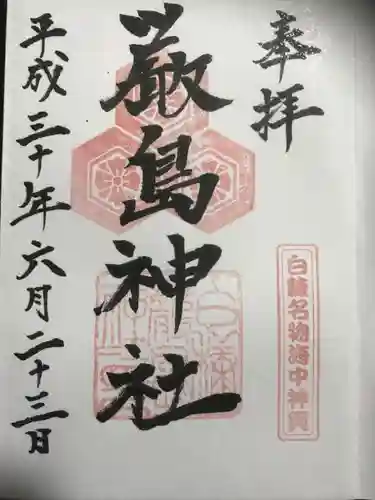 奉拝
白濱名物海中神興
嚴島神社
平成三十年六月二十三日